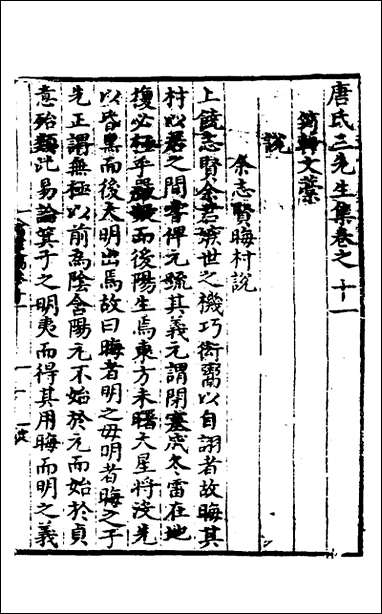 唐氏三先生集卷之十一
筠軒文藁
說
余志賢晦村說
上饒志賢余君嫉世之機巧衒鬻以自詡者故晦其
村以居之間嘗俾元疏其義元謂閉塞成冬雷在地
復必極乎而後陽生焉東方未曙大星將沒先
以昏黑而後天明出焉故曰晦者明之母明者晦之子
先正謂無極以前為陰含陽元不始於元而始於貞
意殆類此易論箕子之明夷而得其用晦而明之義